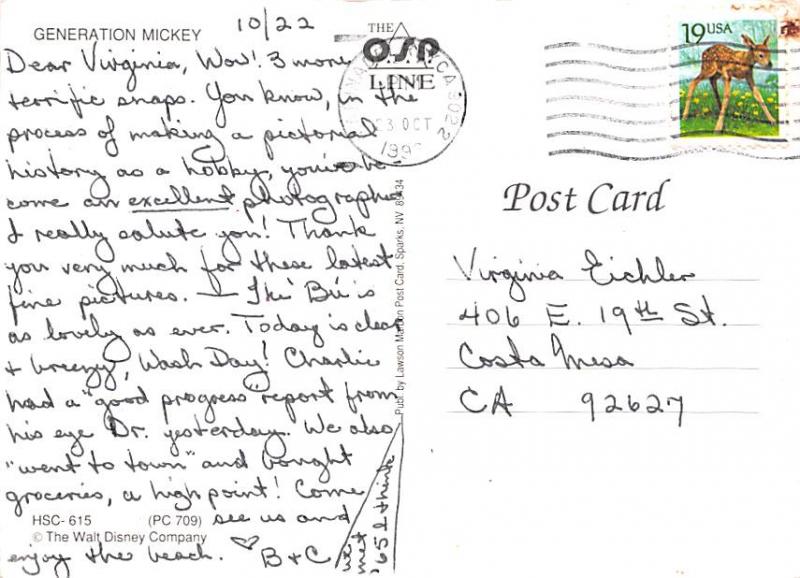 10/22
GENERATION MICKEY
Dear Virginia, Wow! 3 more
terrific snaps. You know, in the
process of making a pictorial
history as a hobby, you've be-
come an excellent photographer
I really salute you! Thank
you very much for these latest
fine pictures. — The' Bu' is
as lovely as ever. Today is clear
& breezy, Wash Day! Charlie
had a "good progress" report from
his eye Dr. yesterday. We also
"went to town" and bought
groceries, a high point! Come
see us and
enjoy the beach. ♡ B + C
HSC- 615 (PC 709)
© The Walt Disney Company
met
'65 I think
Publ. by Lawson Mardon Post Card, Sparks, NV 89434
THE
OSP
LINE
CA 902
OCT
19USA
Post Card
Virginia Eichler
406 E. 19th St.
Costa Mesa
CA 92627